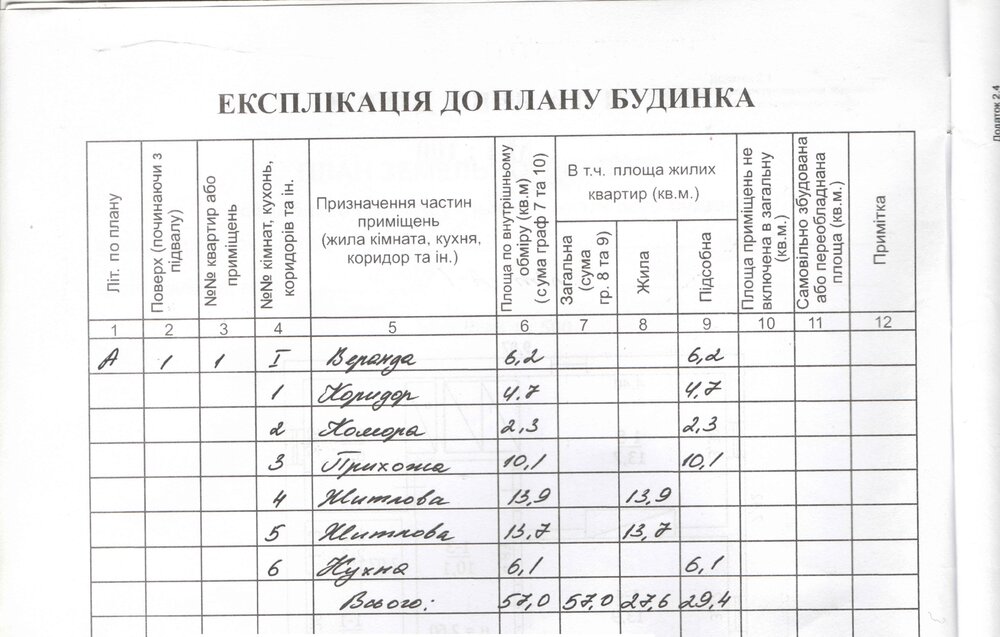 Додаток 2.4
ЕКСПЛІКАЦІЯ ДО ПЛАНУ БУДИНКА
Літ. по плану
Поверх (починаючи з підвалу)
№№ квартир або приміщень
№№ кімнат, кухонь, коридорів та ін.
Призначення частин
приміщень
(жила кімната, кухня,
коридор та ін.)
Площа по внутрішньому
обміру (кв.м)
(сума граф 7 та 10)
В т.ч. площа жилих
квартир (кв.м.)
Загальна
(сума
гр. 8 та 9)
Жила
Підсобна
Площа приміщень не
включена в загальну
(кв.м.)
Самовільно збудована
або переобладнана
площа (кв.м.)
Примітка
1 2 3 4 5 6 7 8 9 10 11 12
А 1 1 I Веранда 6,2 6,2
1 Коридор 4,7 4,7
2 Комора 2,3 2,3
3 Прихожа 10,1 10,1
4 Житлова 13,9 13,9
5 Житлова 13,7 13,7
6 Кухна 6,1 6,1
Всього: 57,0 57,0 27,6 29,4